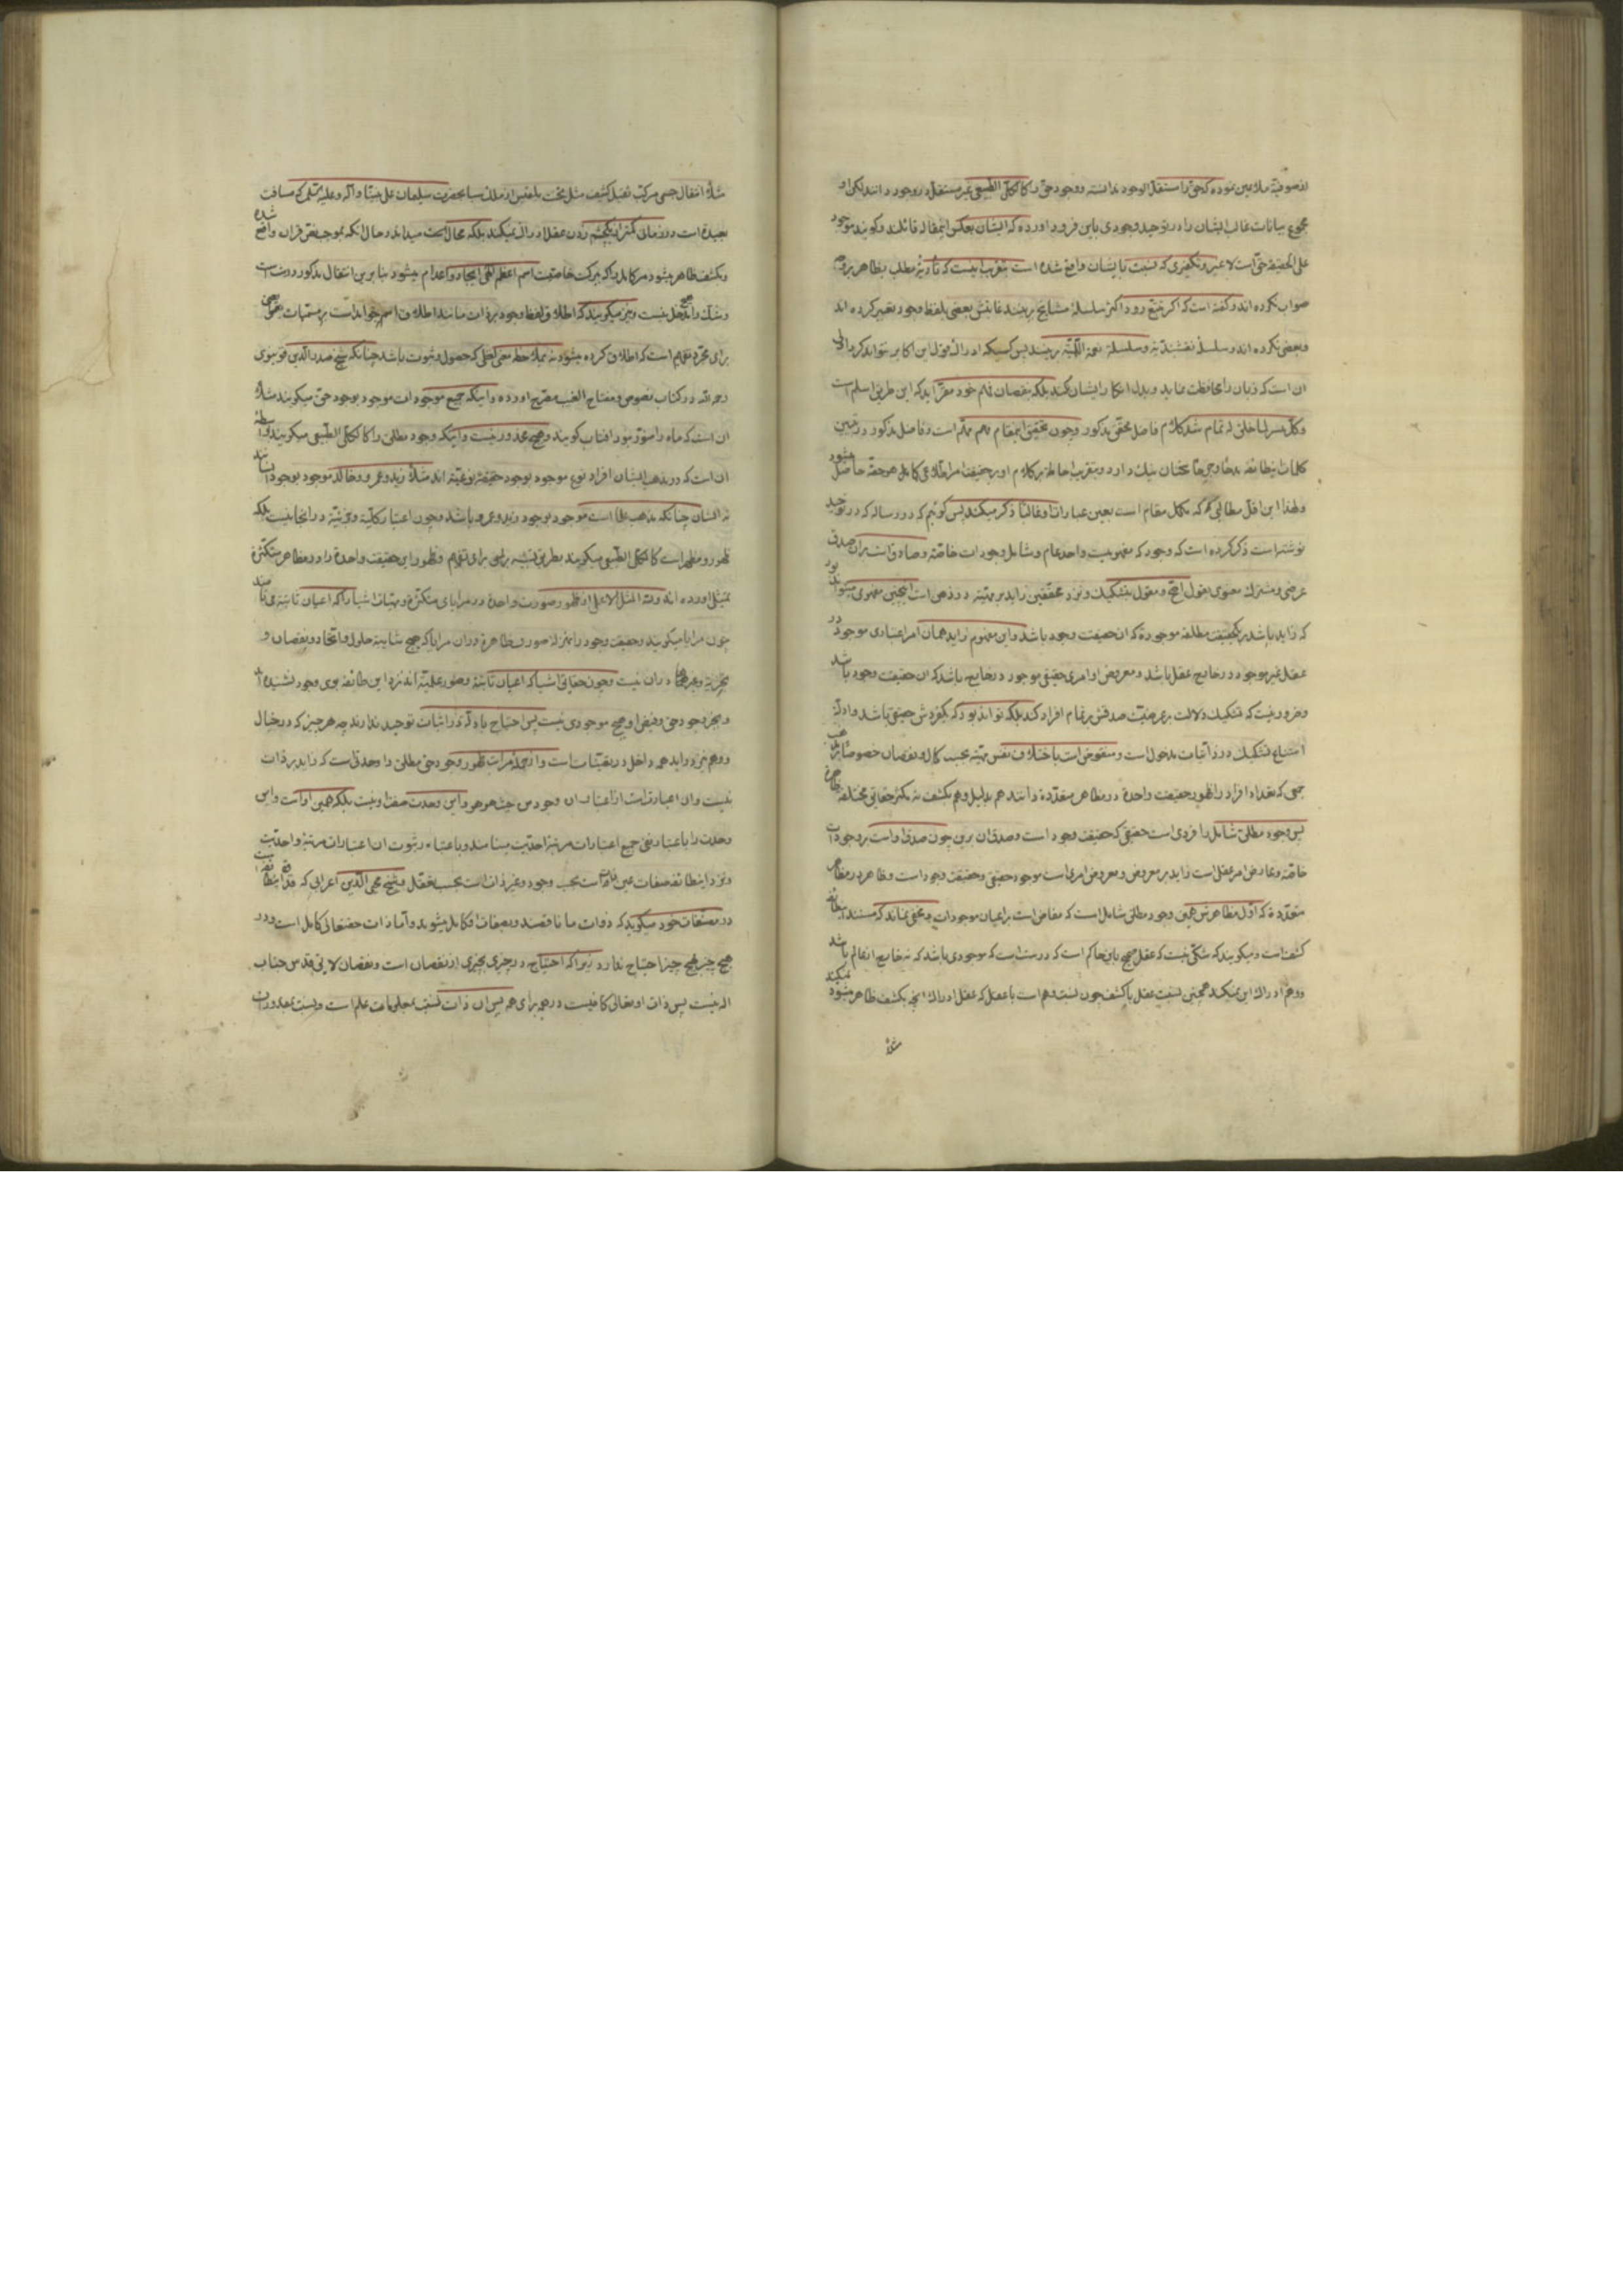 از صوفیه ملاعین نموده که حق را مستقل الوجود ندانسته و وجود حق را کالکلی الطبیعی غیر مستقل در وجود دانند لکن او
مجموع بیانات غالب ایشان را در توحید وجودی باین فرود آورده که ایشان بعکس اینمقاله قائلند و گویند موجود
علی الحقیقه حق است لا غیر و تکفیری که نسبت بایشان واقع شده است بتقریب اینست که تأدیهٔ مطلب بظاهر بر وجه
صواب نکرده اند و گفته است که اگر تتبع رود اکثر سلسلهٔ مشایخ برینند غایتش بعضی بلفظ وجود تعبیر کرده اند
و بعضی نکرده اند و سلسلهٔ نقشبندیه و سلسلهٔ نعمة اللهیه برینند پس کسیکه ادراک قول این اکابر نتواند کرد اولی
آن است که زبان را محافظت نماید و بدل انکار ایشان نکند بلکه بنقصان فهم خود مقر آید که این طریق اسلم است
و کل میسر لما خلق له تمام شد کلام فاضل محقق مذکور و چون تحقیق اینمقام مهم است و فاضل مذکور در تبیین
کلمات اینطائفه سخنان نیک دارد و بتقریب احاطه بر کلام او بر حقیقت امر اطلاعی کما هو حقه حاصل میشود
و لهذا این اقل مطالبی که مکمل مقام است بعین عباراتها و غالبا ذکر میکند پس گوئیم که در رساله که در توحید
نوشته است ذکر کرده است که وجود که مفهومیست واحد عام و شامل وجودات خاصه و صادق است بر آن صدق
عرضی و مشترک معنوی و مقول بتشکیک و نزد محققین زاید بر مهیة در ذهن است اینچنین مفهومی میشود بود
که زاید باشد بر یکحقیقت مطلقه موجوده که آن حقیقت وجود باشد و این مفهوم زاید همان امر اعتباری موجود در
عقل غیر موجود در خارج عقل باشد و معروض او امری حقیقی موجود در خارج باشد که آن حقیقت وجود باشد
و ضرور نیست که تشکیک دلالت بر عرضیت صدقش بر تمام افراد کند بلکه تواند بود که یکفردش حقیقی باشد و ادله
امتناع تشکیک در ذاتیات مدخول است و منقوض است باختلاف نفس مهیة بحسب کمال و نقصان خصوصا بر مذهب
جمعی که تعداد افراد را ظهور حقیقت واحده در مظاهر متعدده دانند هم بدلیل و هم بکشف نه تکثر حقایق مختلفه ظاهره
پس وجود مطلق شامل را فردی است حقیقی که حقیقت وجود است و صدق آن برین چون صدق او است بر وجودات
خاصه و عارض امر عقلی است زاید بر معروض و معروض امری است موجود حقیقی و حقیقت وجود است و ظاهر در مظاهر
متعدده که اول مظاهرش همین وجود مطلق شامل است که مفاض است بر اعیان موجودات و مخفی نماند که مستند اینطائفه
کشف است و میگویند که شکی نیست که عقل صحیح باین حاکم است که درست است که موجودی باشد که نه خارج از عالم باشد
و وهم ادراک این نمیکند همچنین نسبت عقل با کشف چون نسبت وهم است با عقل که عقل ادراک انچه بکشف ظاهر میشود نمیکند
مثلا
مثلا انتقال جسمی مرکب ثقیل کثیف مثل تخت بلقیس از ملک سبا بحضرت سلیمان علی نبینا و آله و علیه السلام که مسافت
بعیده است در زمانی کمتر از یکچشم زدن عقل ادراک نمیکند بلکه محال بحت میداند و حال آنکه بموجب نص قرآن واقع شده
و بکشف ظاهر میشود مر کامل را که ببرکت خاصیت اسم اعظم الهی ایجاد و اعدام میشود بنابرین انتقال مذکور درست است
و شک را مدخل نیست و نیز میگویند که اطلاق لفظ وجود بر ذات مانند اطلاق اسم است بر مسمیات خواص
برای مجرد تفهیم است که اطلاق کرده میشود نه بملاحظه معنی لفظی که حصول و ثبوت باشد چنانکه شیخ صدر الدین قونیوی
رحمه الله در کتاب نصوص و مفتاح الغیب تصریح آورده و اینکه جمیع موجودات موجود بوجود حق میگویند مثلا
آن است که ماه را منور بنور آفتاب گویند و هیچ محذور نیست و اینکه وجود مطلق را کالکلی الطبیعی میگویند واسطه
آن است که در مذهب ایشان افراد نوع موجود بوجود حقیقه نوعیه اند مثلا زید و عمرو و خالد موجود بوجود انسانند
نه انسان چنانکه مذهب علما است موجود بوجود زید و عمرو باشد و چون اعتبار کلیة و جزئیة در انجا نیست بلکه
ظهور و مظهر است کالکلی الطبیعی میگویند بطریق تشبیه برای تفهیم و ظهور این حقیقت واحده را در مظاهر متکثره
تمثیل آورده اند و لله المثل الاعلی از ظهور صورت واحده در مرایای متکثره و مهیات اشیا را که اعیان ثابته می نامند
چون مرایا میگویند و حقیقت وجود را بمنزله صورت ظاهره در آن مرایا که هیچ شایبه حلول و اتحاد و نقصان و
تجزیه و غیرها در آن نیست و چون حقایق اشیا که اعیان ثابته و صور علمیه اند نزد این طائفه بوی وجود نشنیده اند
و بجز وجود حق و فیض او هیچ موجودی نیست پس احتیاج بادله در اثبات توحید ندارند چه هر چیز که در خیال
و وهم نیز در آید همه داخل در تعینات است و از جمله مراتب ظهور وجود حق مطلق را وحدتی است که زاید بر ذات
نیست و آن عبارت است از اعتبار آن وجود من حیث هو هو و این وحدت صفت او نیست بلکه عین او است و این
وحدت را باعتبار نفی جمیع اعتبارات مرتبهٔ احدیت مینامند و باعتبار ثبوت آن اعتبارات مرتبهٔ واحدیت
و نزد اینطائفه صفات عین ذات است بحسب وجود و غیر ذات است بحسب تعقل و شیخ محی الدین اعرابی که قدوه اینطائفه است
در مصنفات خود میگوید که ذوات ما ناقصند و بصفات کامل میشوند و اما ذات حقتعالی کامل است و در
هیچ چیز بهیچ چیز احتیاج ندارد زیرا که احتیاج در چیزی بچیزی از نقصان است و نقصان لایق قدس جناب
اله نیست پس ذات او تعالی کافیست در همه برای همه پس آن ذات نسبت بمعلومات علم است و نسبت بمقدورات